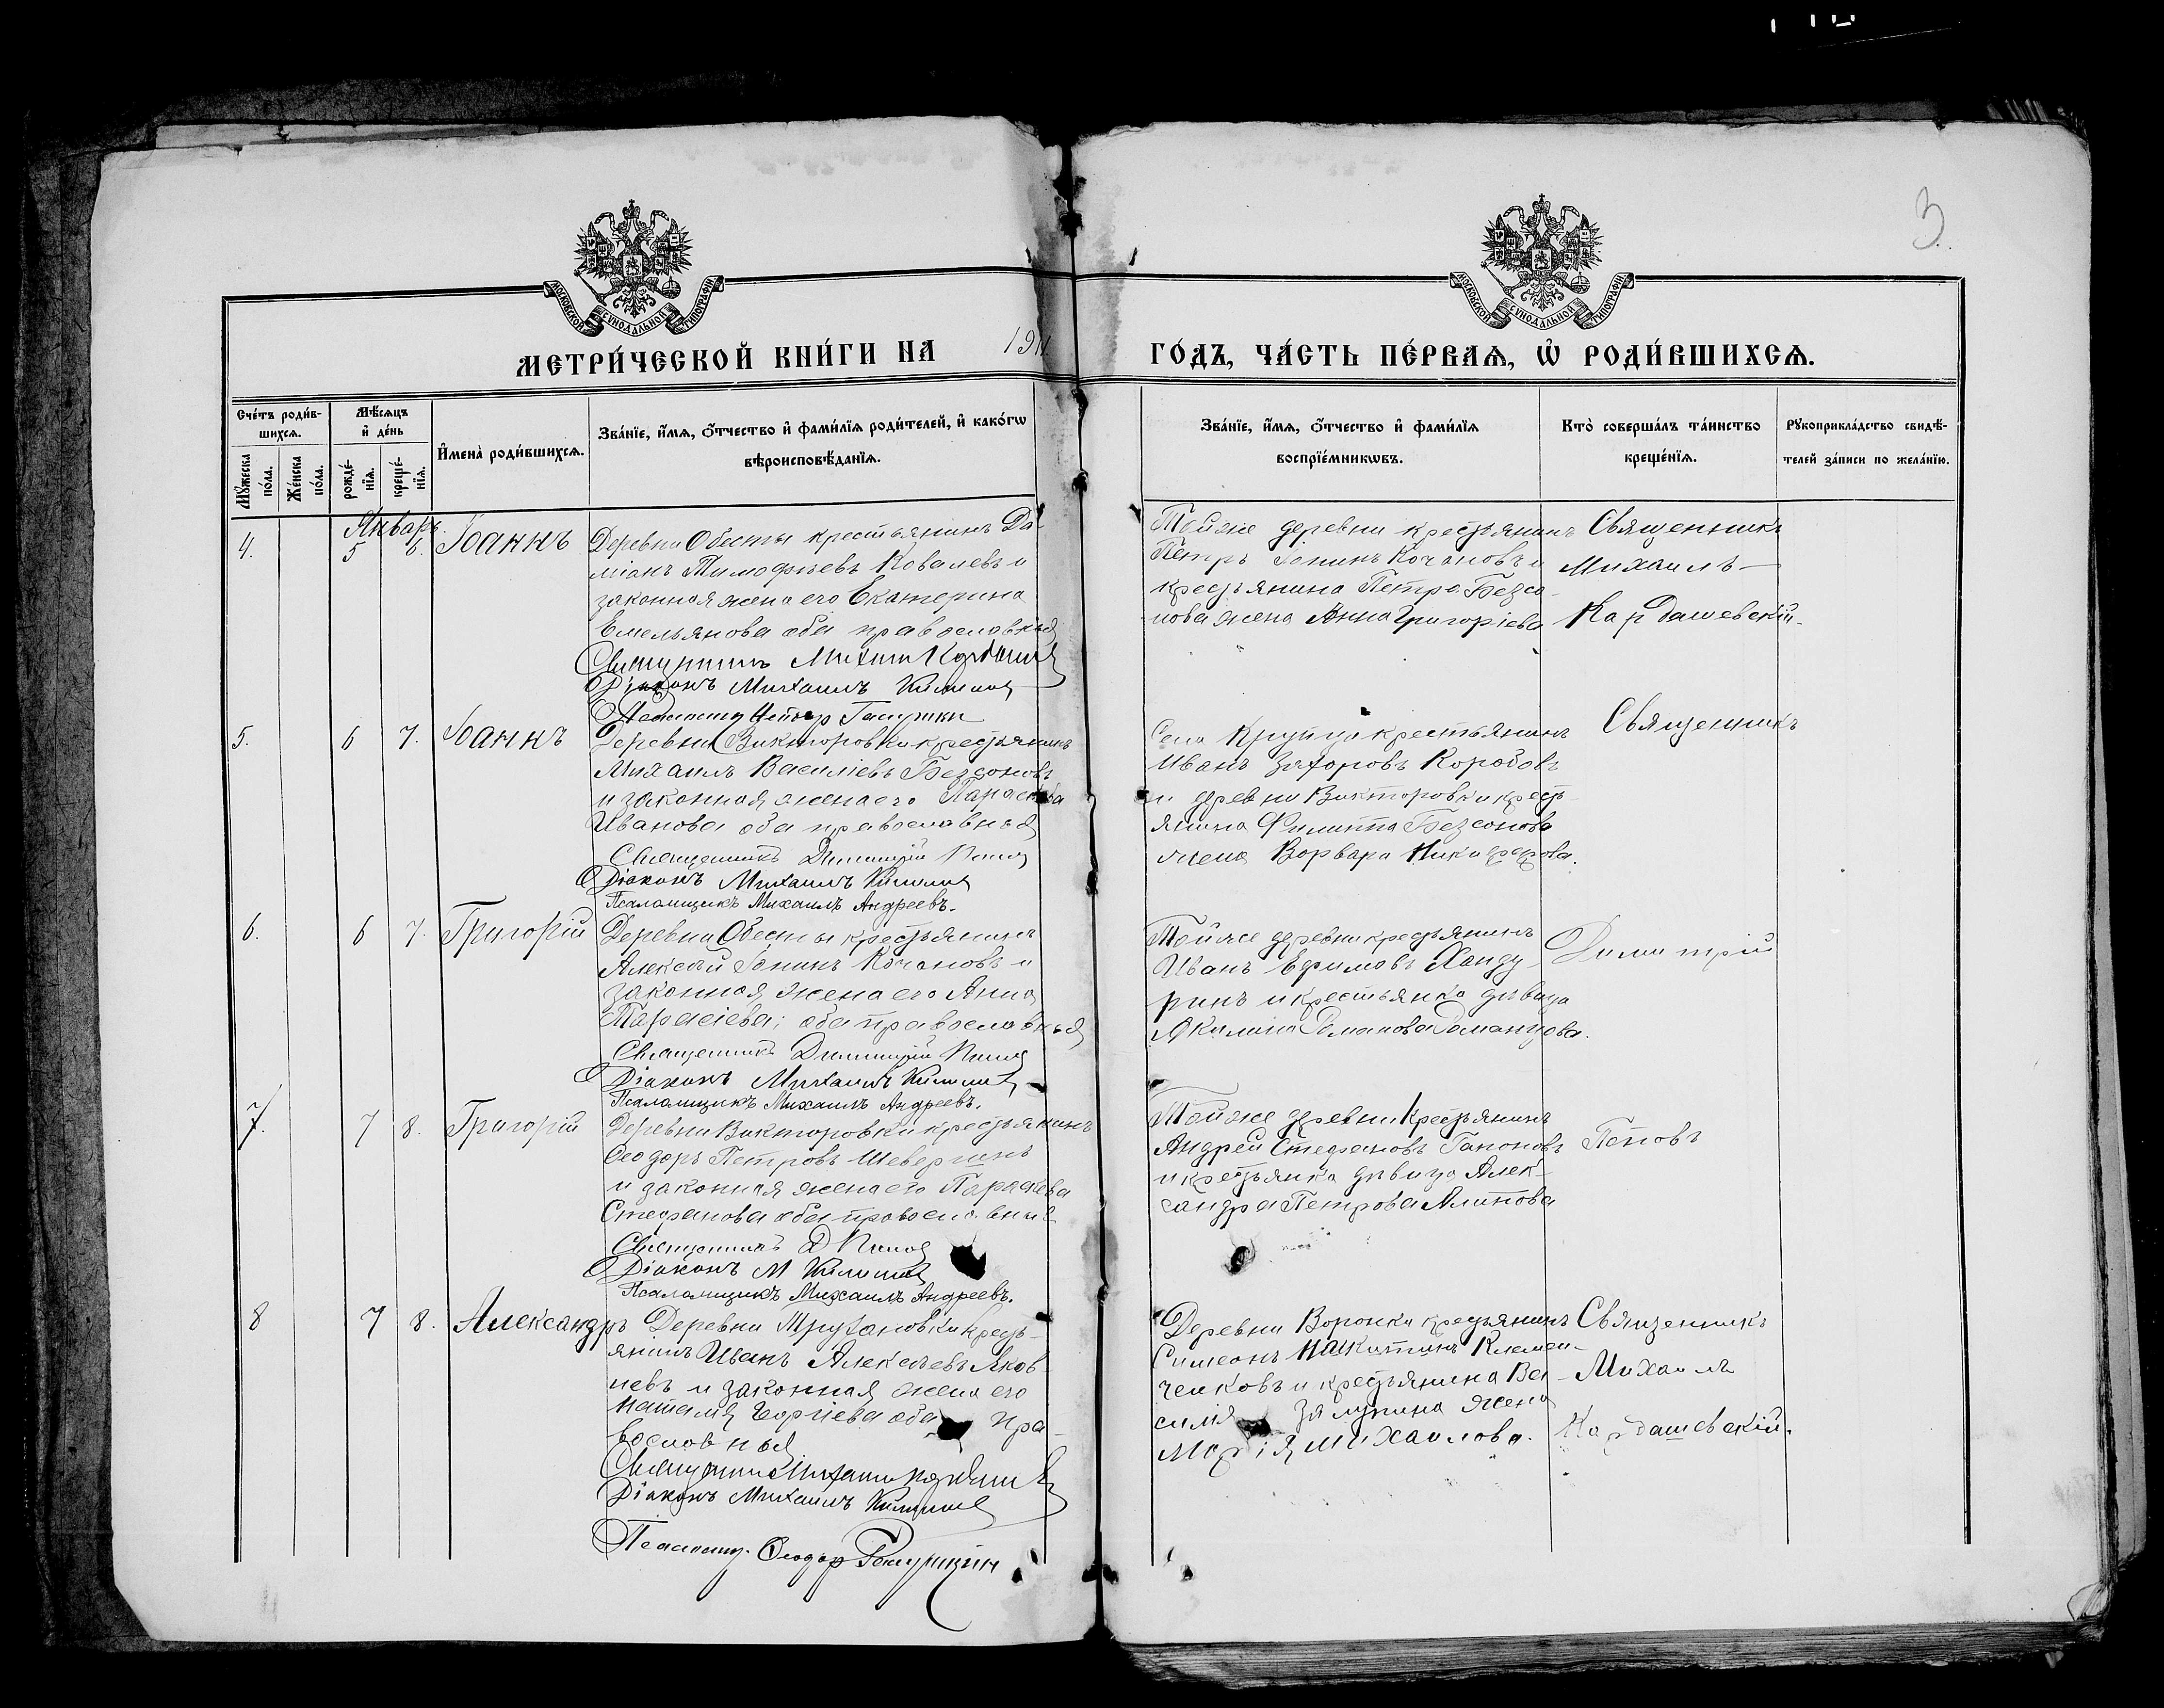 3
МОСКОВСКОЙ СУНОДАЛЬНОЙ ТИПОГРАФІИ
МОСКОВСКОЙ СУНОДАЛЬНОЙ ТИПОГРАФІИ
МЕТРИ́ЧЕСКОЙ КНИ́ГИ НА 1911 ГО́ДЪ, ЧА́СТЬ ПЕ́РВАѦ, Ѡ҆ РОДИ́ВШИХСѦ.
Сче́тъ роди́в-
шихсѧ.
Мꙋ́жеска по́ла.
Же́нска по́ла.
Мѣ́сѧцъ
и҆ де́нь
рожде́-
нїѧ.
креще́-
нїѧ.
И҆мена̀ роди́вшихсѧ.
Зва́нїе, и҆́мѧ, ѻ҆́тчество и҆ фами́лїѧ роди́телей, и҆ како́гѡ
вѣроисповѣ́данїѧ.
Зва́нїе, и҆́мѧ, ѻ҆́тчество и҆ фами́лїѧ
воспрїе́мникѡвъ.
Кто̀ соверша́лъ та́инство
креще́нїѧ.
Рꙋкоприкла́дство свидѣ́-
телей за́писи по жела́нїю.
Январь
4. 5 6. Іоаннъ
Деревни Обесты крестьянинъ Да-
міанъ Тимофѣевъ Ковалевъ и
законная жена его Екатерина
Емельянова оба православныя
Священникъ Михаилъ
Діаконъ Михаилъ
Той же деревни крестьянинъ
Петръ Іонинъ Кочановъ и
крестьянина Петра Безсо-
нова жена Анна Григоріева
Священникъ
Михаилъ
Кардашевскій.
5. 6 7. Іоаннъ
Деревни Викторовки крестьянинъ
Михаилъ Василіевъ Безсоновъ
и законная жена его Параскева
Иванова оба православныя
Священникъ Димитрій Поповъ
Діаконъ Михаилъ
Псаломщикъ Михаилъ Андреевъ.
Села крестьянинъ
Иванъ Захаровъ Коробовъ
и деревни Викторовки кресть-
янина Филиппа Безсонова
жена Варвара Никифорова.
Священникъ
6. 6 7. Григорій
Деревни Обесты крестьянинъ
Алексѣй Іонинъ Кочановъ и
законная жена его Анна
Тарасіева; оба православныя
Священникъ Димитрій Поповъ
Діаконъ Михаилъ
Псаломщикъ Михаилъ Андреевъ.
Той же деревни крестьянинъ
Иванъ Ефимовъ Ханду-
ринъ и крестьянка дѣвица
Акилина Романова Романцова.
Димитрій
7. 7 8. Григорій
Деревни Викторовки крестьянинъ
Ѳеодоръ Петровъ
и законная жена его Параскева
Стефанова оба православныя
Священникъ Д Поповъ
Діаконъ М
Псаломщикъ Михаилъ Андреевъ.
Той же деревни крестьянинъ
Андрей Стефановъ Гапоновъ
и крестьянка дѣвица Алек-
сандра Петрова
Поповъ
8 7 8. Александръ
Деревни кресть-
янинъ Иванъ Алексѣевъ Яков-
левъ и законная жена его
Наталія оба пра-
вославныя
Священникъ Михаилъ
Діаконъ Михаилъ
Ѳеодоръ
Деревни Воронки крестьянинъ
Симеонъ Никитинъ Клемен-
ченковъ и крестьянина Ва-
силія жена
Марія Михаилова.
Священникъ
Михаилъ
Кардашевскій.